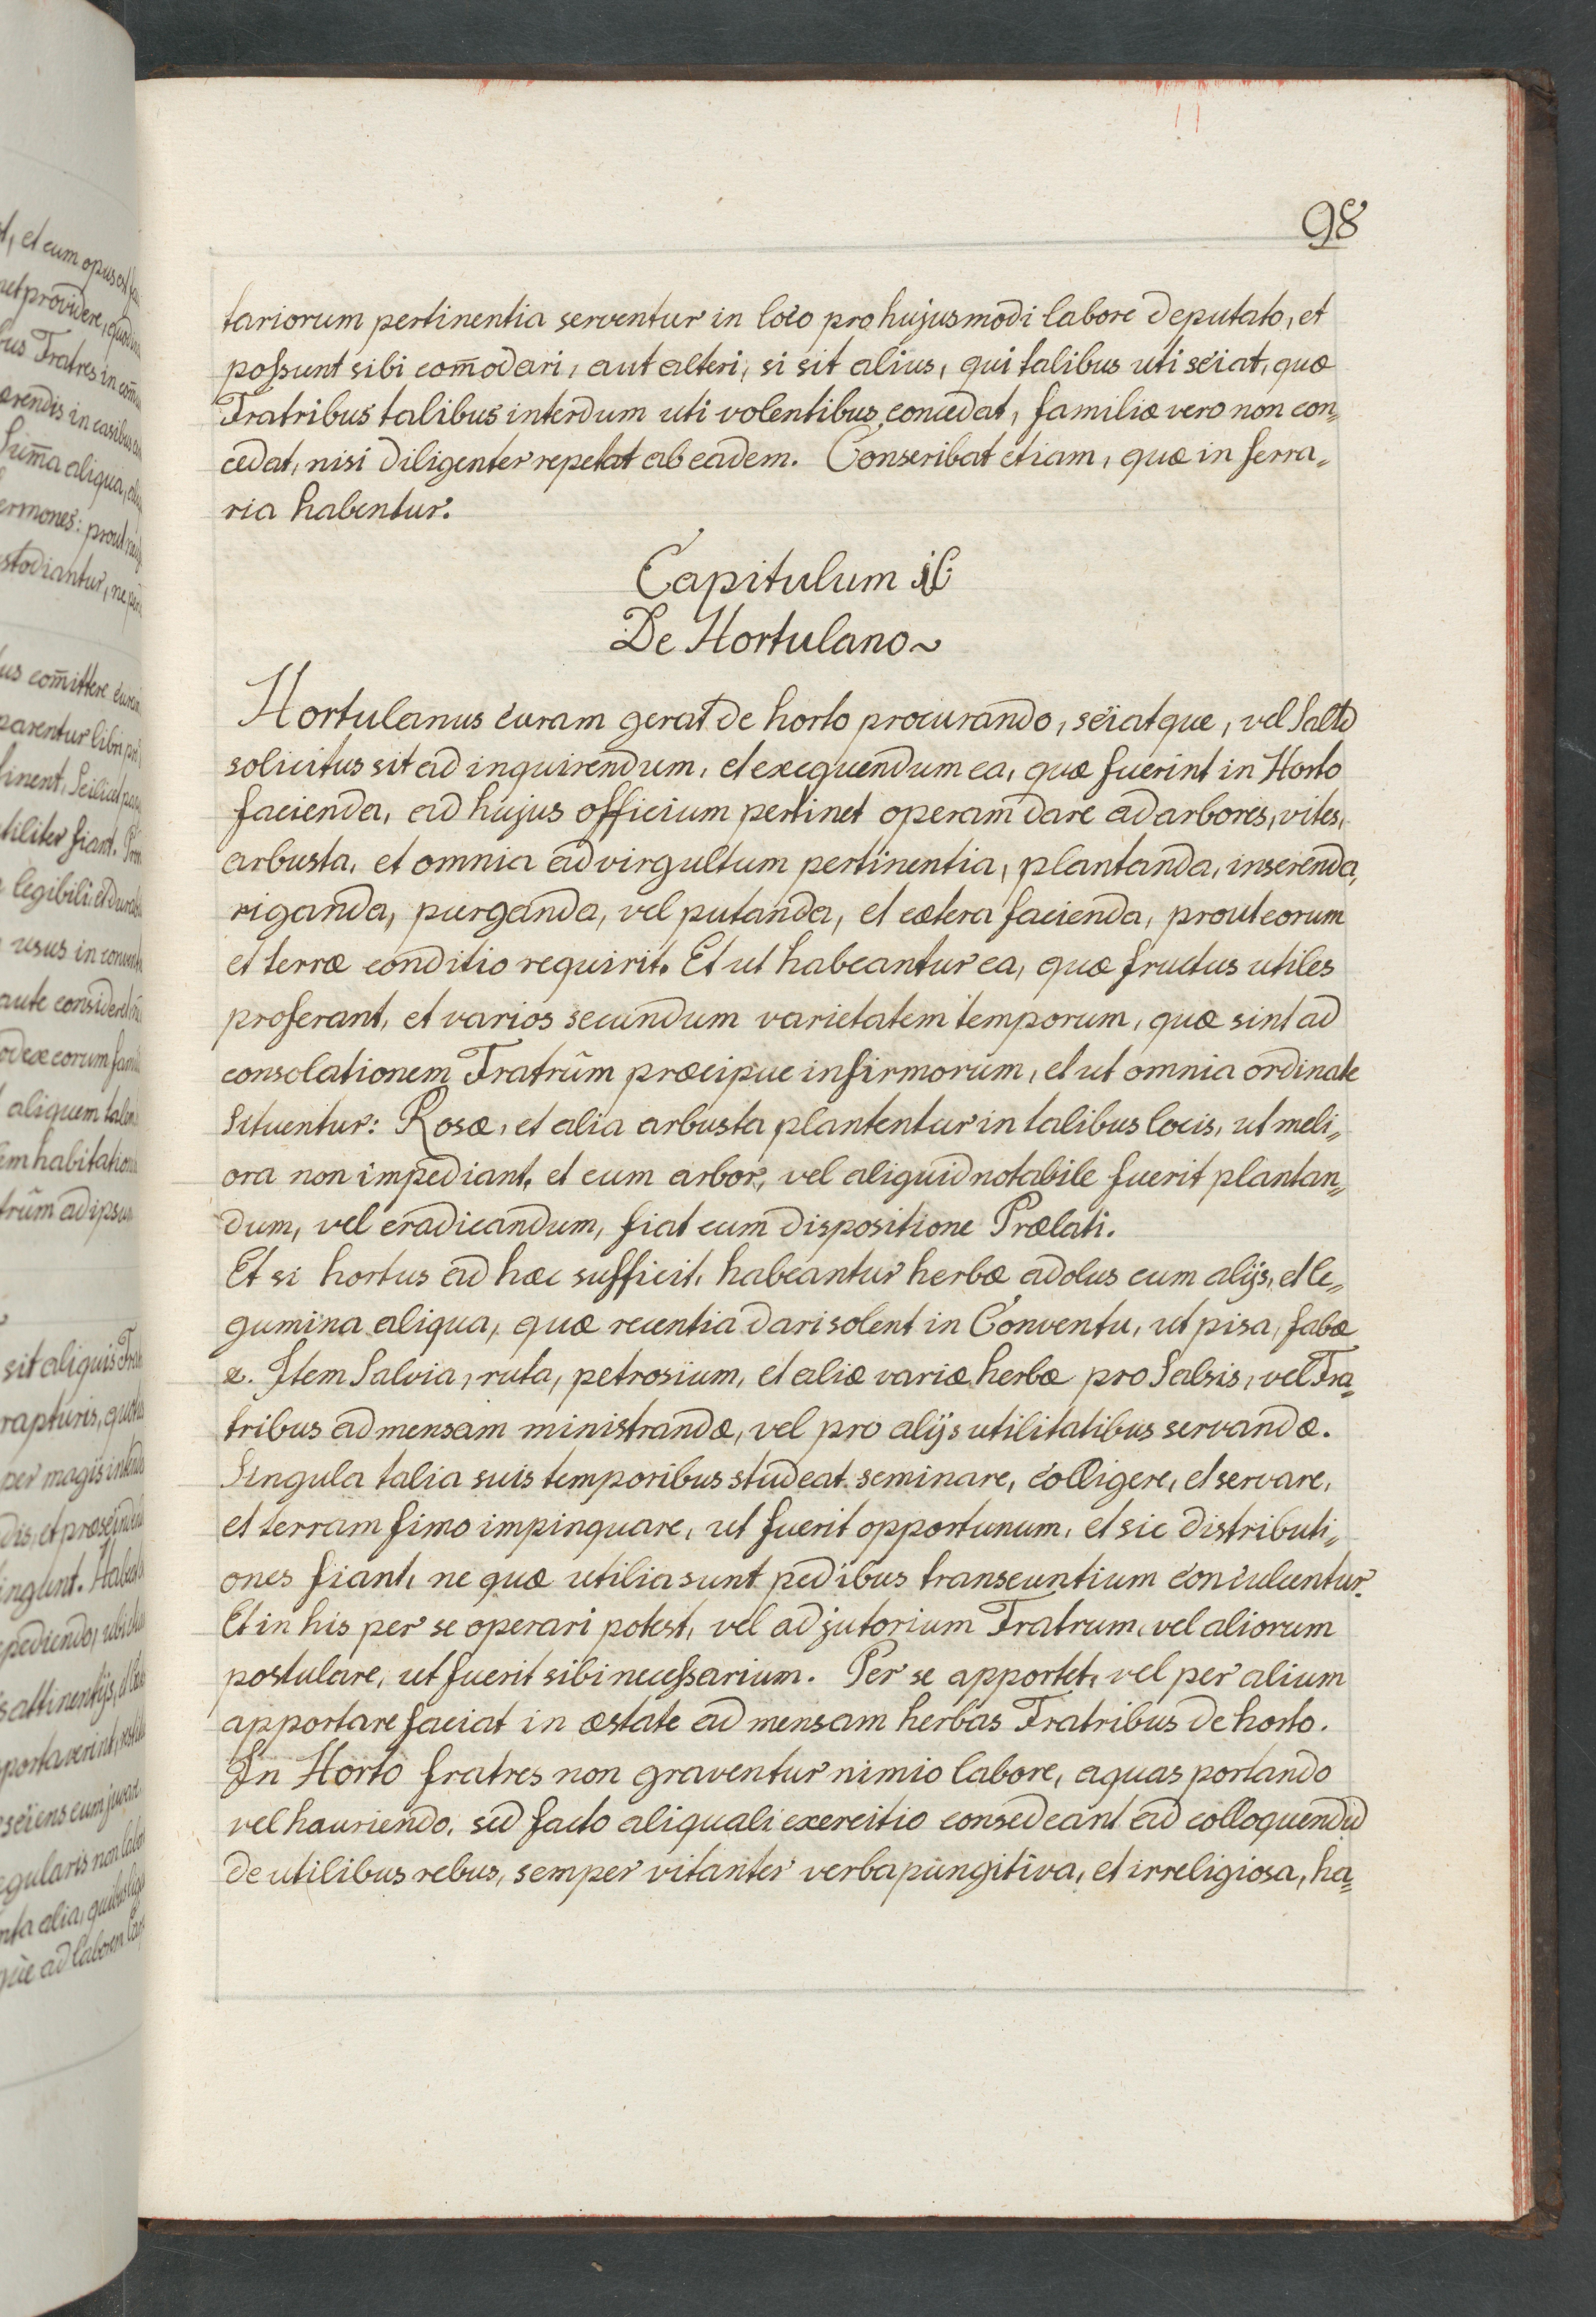 98
tariorum pertinentia serventur in loco pro hujusmodi labore deputato, et
possunt sibi com̃odari, aut alteri, si sit alius, qui talibus uti sciat, quæ
Fratribus talibus interdum uti volentibus concedat, familiæ vero non con„
cedat, nisi diligenter repetat ab eadem. Conscribat etiam, quæ in ferra„
ria habentur.
Capitulum
De Hortulano~
Hortulanus curam gerat de horto procurando, sciatque, vel Salt̄
solicitus sit ad inquirendum, et exequendum ea, quæ fuerint in Horto
facienda, ad hujus officium pertinet operam dare ad arbores, vites,
arbusta, et omnia ad virgultum pertinentia, plantanda, inserenda,
riganda, purganda, vel putanda, et cætera facienda, prout eorum
et terræ conditio requirit. Et ut habeantur ea, quæ fructus utiles
proferant, et varios secundum varietatem temporum, quæ sint ad
consolationem Fratrũm præcipue infirmorum, et ut omnia ordinate
Situentur: Rosæ, et alia arbusta plantentur in talibus locis, ut meli„
ora non impediant, et cum arbor, vel aliquid notabile fuerit plantan„
dum, vel eradicandum, fiat cum dispositione Prælati.
Et si hortus ad hæc sufficit, habeantur herbæ ad olus cum alijs, et le„
gumina aliqua, quæ recentia dari solent in Conventu, ut pisa, fabæ
&. Item Salvia, ruta, petrosium, et aliæ variæ herbæ pro Salsis, vel Fra„
tribus ad mensam ministrandæ, vel pro alijs utilitatibus servandæ.
Singula talia suis temporibus studeat seminare, colligere, et servare,
et terram fimo impinguare, ut fuerit opportunum, et sic distributi„
ones fiant, ne quæ utilia sunt pedibus transeuntium conculcentur.
Et in his per se operari potest, vel adjutorium Fratrum, vel aliorum
postulare, ut fuerit sibi necessarium. Per se apportet, vel per alium
apportare faciat in æstate ad mensam herbas Fratribus de horto.
In Horto fratres non graventur nimio labore, aquas portando
vel hauriendo, sed facto aliquali exercitio consedeant ad colloquendũ
de utilibus rebus, semper vitanter verba pungitiva, et irreligiosa, ha„